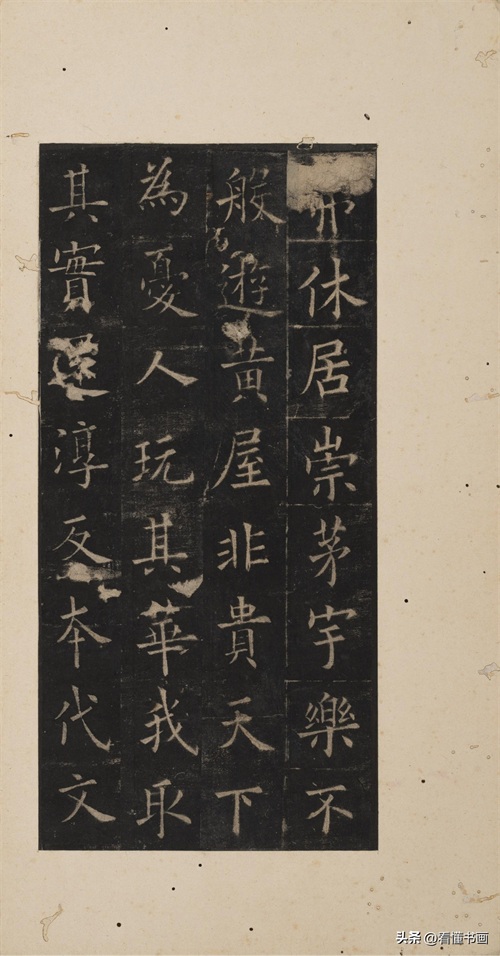 休居崇茅宇樂不
般遊黄屋非貴天下
為憂人玩其華我取
其實還淳反本代文
头条 @看懂书画